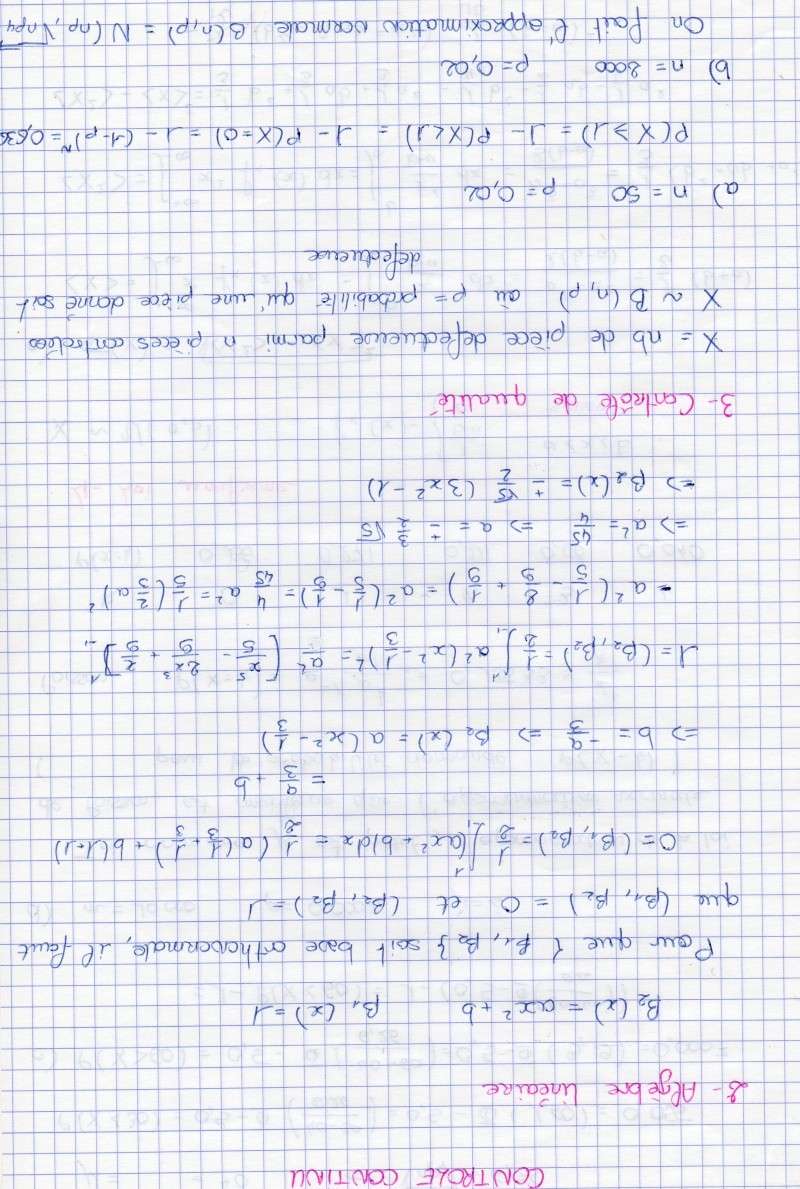 CONTROLE CONTINU
2- Algèbre linéaire
β₂(x) = ax² + b     β₁(x) = 1
Pour que { β₁, β₂ } soit base orthonormale, il faut
que (β₁, β₂) = 0 et (β₂, β₂) = 1
0 = (β₁, β₂) = 1/2 ∫₋₁¹ (ax² + b)dx = 1/2 (a(1/3 + 1/3) + b(1+1))
= a/3 + b
=> b = -a/3 => β₂(x) = a(x² - 1/3)
1 = (β₂, β₂) = 1/2 ∫₋₁¹ a²(x² - 1/3)² = a²/2 [x⁵/5 - 2x³/9 + x/9]₋₁¹
= a²(1/5 - 2/9 + 1/9) = a²(1/5 - 1/9) = 4/45 a² = 1/5 (2/3 a)²
=> a² = 45/4 => a = ± 3/2 √5
=> β₂(x) = ± √5/2 (3x² - 1)
3- Contrôle de qualité
X = nb de pièce defectueuse parmi n pièces controlées
X ~ B(n, p) où p = probabilité qu'une pièce donné soit
defectueuse
a) n = 50     p = 0,02
P(X ≥ 1) = 1 - P(X < 1) = 1 - P(X=0) = 1 - (1-p)ⁿ = 0,636
b) n = 2000     p = 0,02
On fait l'approximation normale B(n, p) = N(np, √npq